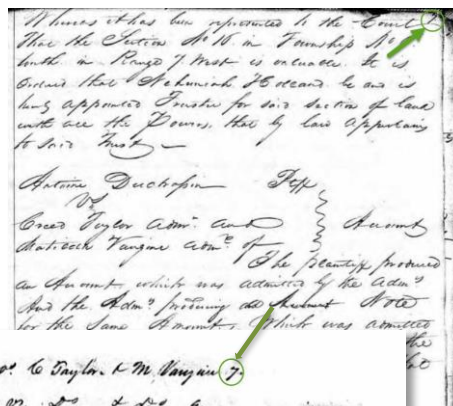 Whereas it has been represented to the Court
That the Section No 16. in Township No
tenth in Range 7. West is valuable. It is
ordered that Nehemiah Holland be and is
hereby appointed Trustee for said Section of land
with all the Powers, that by law appertains
to said Trust
Antoine Duchassin Plff
Vs
Creed Taylor Admr. and Account
Vaugine Admx. of
The plaintiff produced
an Account, which was admitted by the Admrs
And the Admrs producing Note
for the Same Amount. Which was admitted
the
C Taylor. & M. Vaugine 7.